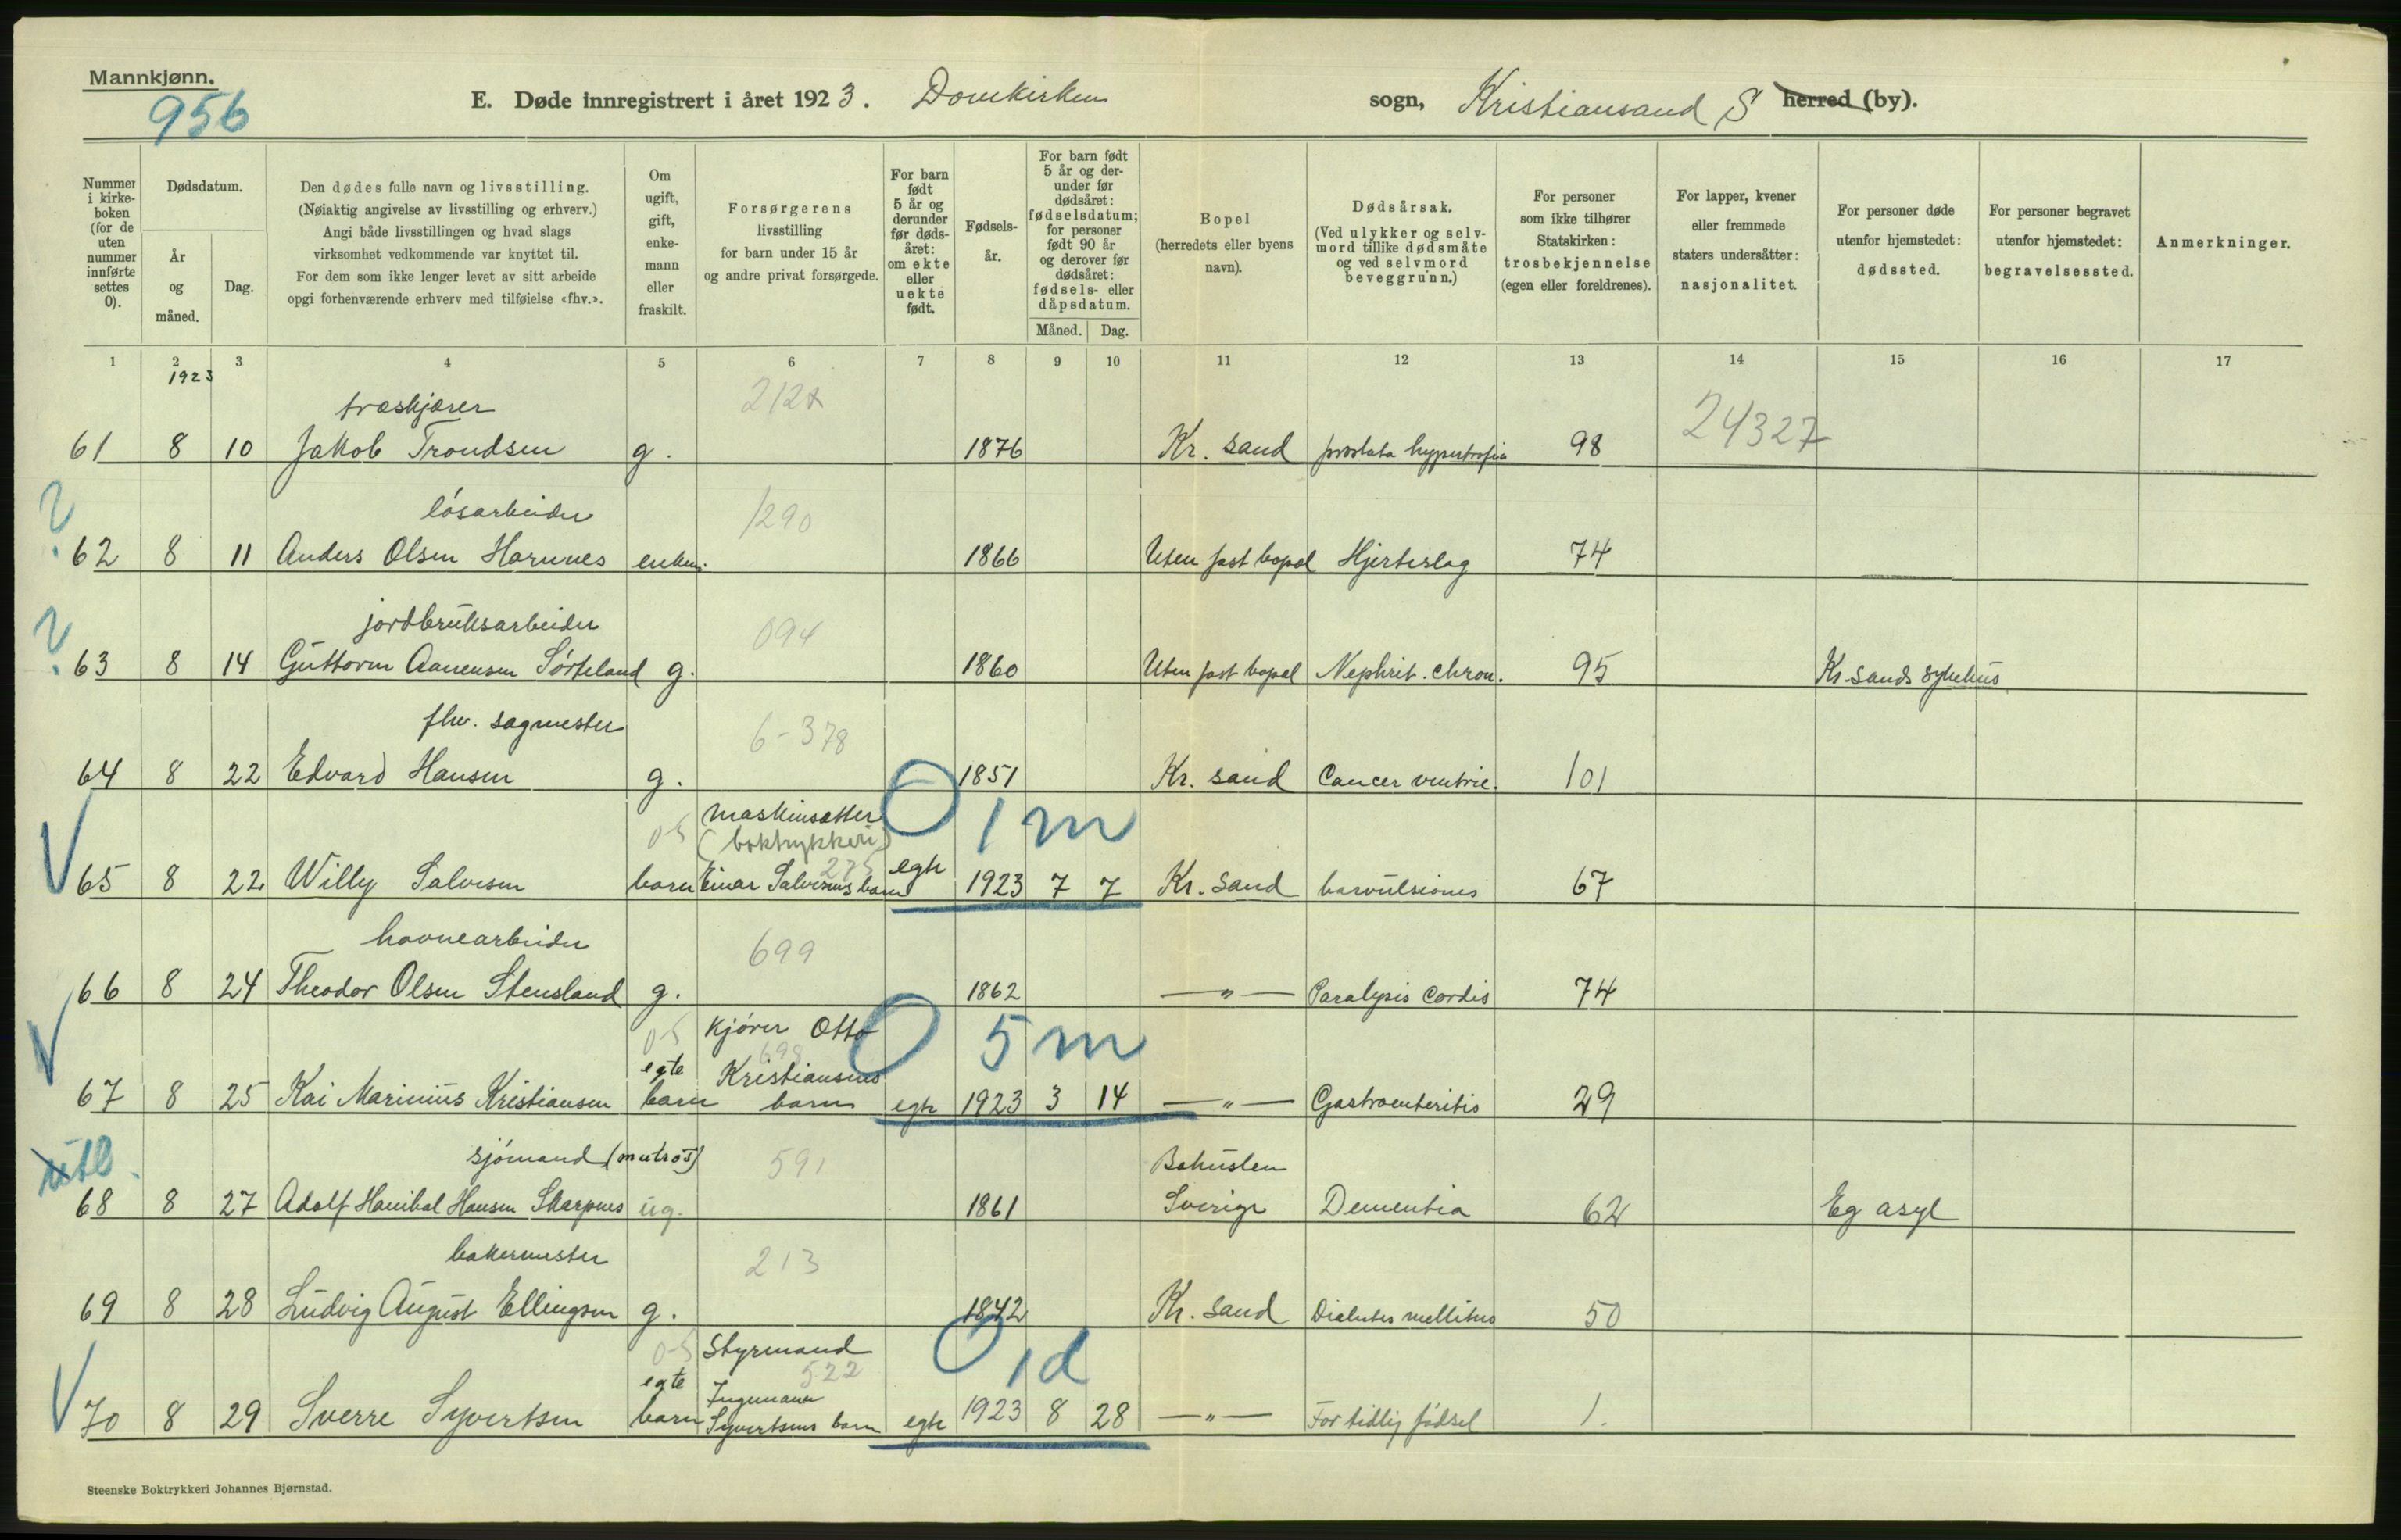 Mannkjønn.
956
E. Døde innregistrert i året 1923. Domkirken sogn, Kristiansand S herred (by).
Nummer i kirkeboken (for de uten nummer innførte settes 0).
Dødsdatum.
År og måned.
Dag.
Den dødes fulle navn og livsstilling.
(Nøiaktig angivelse av livsstilling og erhverv.)
Angi både livsstillingen og hvad slags
virksomhet vedkommende var knyttet til.
For dem som ikke lenger levet av sitt arbeide
opgi forhenværende erhverv med tilføielse «fhv.».
Om ugift, gift, enkemann eller fraskilt.
Forsørgerens
livsstilling
for barn under 15 år
og andre privat forsørgede.
For barn født 5 år og derunder før dødsåret: om ekte eller uekte født.
Fødselsår.
For barn født 5 år og derunder før dødsåret: fødselsdatum; for personer født 90 år og derover før dødsåret: fødsels- eller dåpsdatum.
Måned. Dag.
Bopel
(herredets eller byens
navn).
Dødsårsak.
(Ved ulykker og selvmord tillike dødsmåte og ved selvmord beveggrunn.)
For personer
som ikke tilhører
Statskirken:
trosbekjennelse
(egen eller foreldrenes).
For lapper, kvener
eller fremmede
staters undersåtter:
nasjonalitet.
For personer døde
utenfor hjemstedet:
dødssted.
For personer begravet
utenfor hjemstedet:
begravelsessted.
Anmerkninger.
1 2 3 4 5 6 7 8 9 10 11 12 13 14 15 16 17
1923
træskjærer 212x
61 8 10 Jakob Trondsen g. 1876 Kr. sand prostata hypertrofia 98 24327
? løsarbeider 1290
62 8 11 Anders Olsen Harunes enkem. 1866 Uten fast bopel Hjerteslag 74
? jordbruksarbeider 094
63 8 14 Guttorm Aanensen Sørteland g. 1860 Uten fast bopel Nephrit. chron. 95 Kr.sands sykehus
fhv. sagmester 6-378
64 8 22 Edvard Hansen g. 1851 Kr. sand Cancer ventric. 101
maskinsætter 1 m
0-5 (boktrykkeri)
65 8 22 Willy Salvesen barn Einar Salvesens barn 275 egte 1923 7 7 Kr. Sand convulsiones 67
havnearbeider 699
66 8 24 Theodor Olsen Stensland g. 1862 —"— Paralysis Cordis 74
0-5 Kjører Otto 5 m
egte Kristiansens 698
67 8 25 Kai Marinius Kristiansen barn barn egte 1923 3 14 —"— Gastroenteritis 29
utl. sjømand (matros) 591 Bohuslen
68 8 27 Adolf Hanibal Hansen Skarpnes ug. 1861 Sverige Dementia 62 Eg asyl
bakermester 213
69 8 28 Ludvig August Ellingsen g. 1842 Kr. sand Diabetes mellitus 50
0-5 Styrmand 522 1 d
egte Ingemann
70 8 29 Sverre Syvertsen barn Syvertsens barn egte 1923 8 28 —"— For tidlig fødsel 1.
Steenske Boktrykkeri Johannes Bjørnstad.